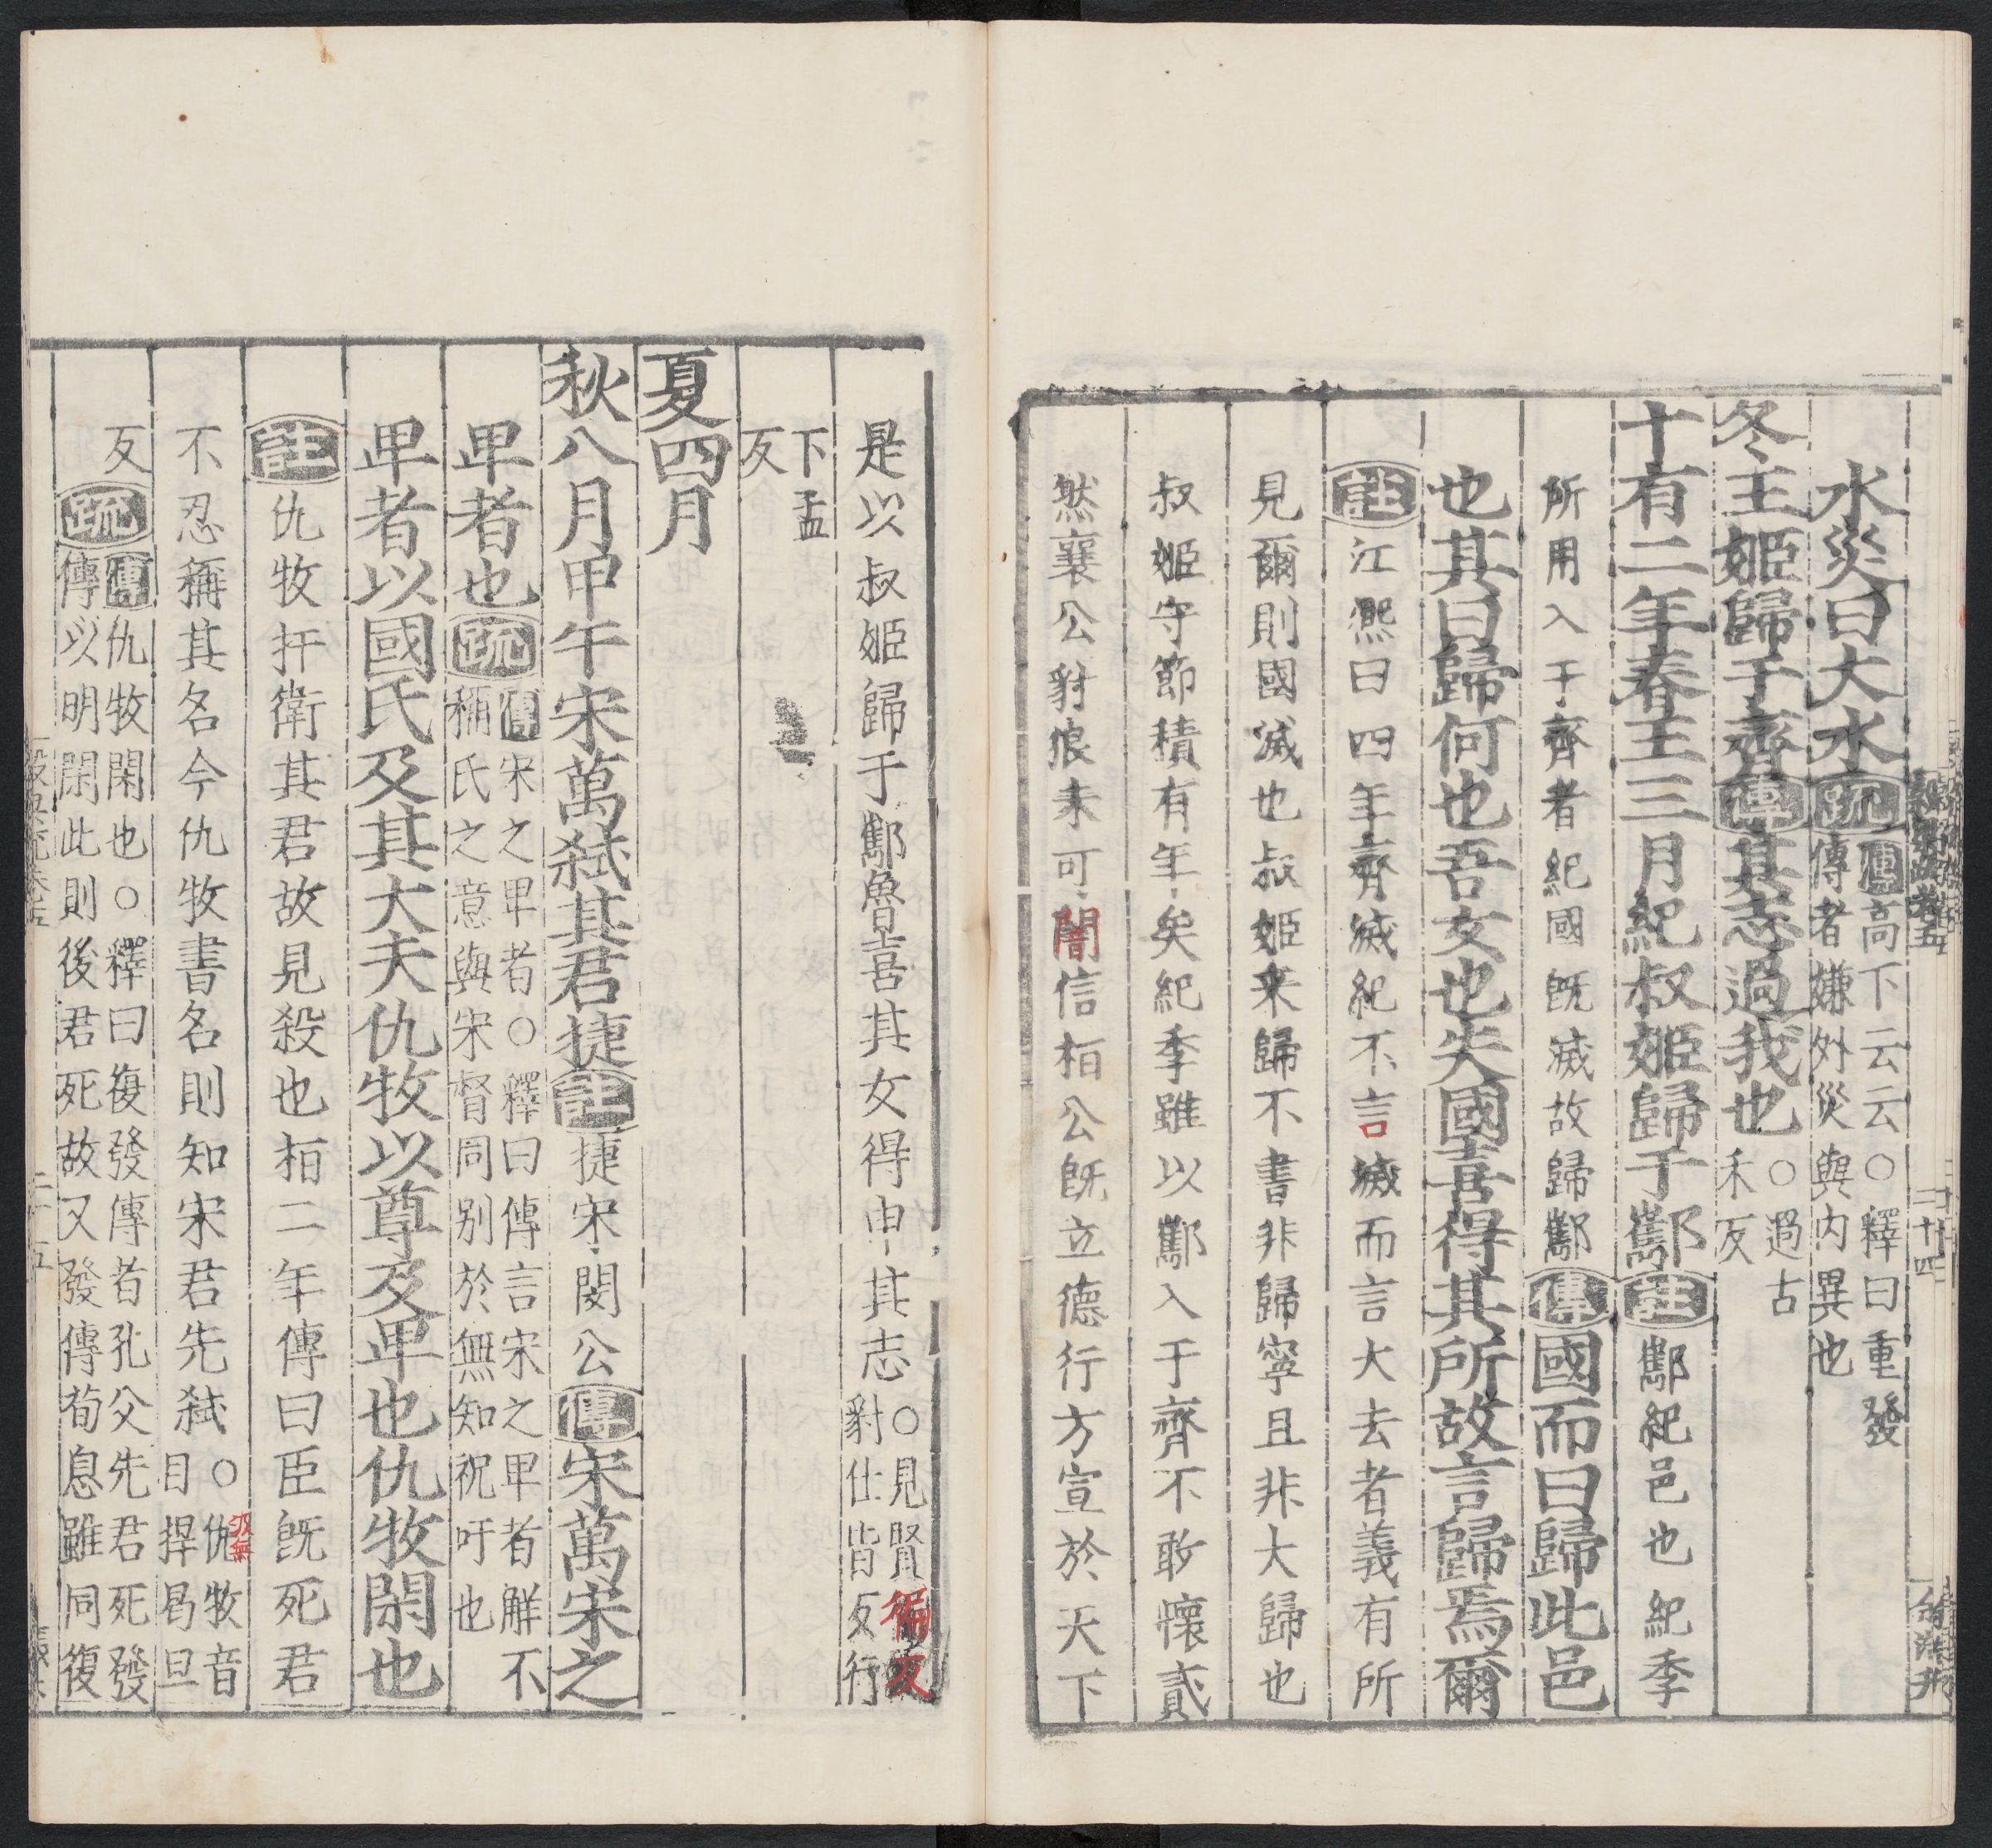 水災曰大水疏傳高下云云○釋曰重發
傳者嫌外災與内異也
冬王姬歸于齊傳其志過我也○過古
禾反
十有二年春王三月紀叔姬歸于酅註酅紀邑也紀季
所用入于齊者紀國既滅故歸酅傳國而曰歸此邑
也其曰歸何也吾女也失國喜得其所故言歸焉爾
註江熙曰四年齊滅紀不言滅而言大去者義有所
見爾則國滅也叔姬来歸不書非歸寧且非大歸也
叔姬守節積有年矣紀季雖以酅入于齊不敢懷貳
然襄公豺狼未可闇信桓公既立德行方宣於天下
是以叔姬歸于酅魯喜其女得申其志○見賢徧反
豺仕皆反行
下孟
反
夏四月
秋八月甲午宋萬弑其君捷註捷宋閔公傳宋萬宋之
卑者也疏傳宋之卑者○釋曰傳言宋之卑者解不
稱氏之意與宋督同別於無知祝吁也
卑者以國氏及其大夫仇牧以尊及卑也仇牧閑也
註仇牧扞衛其君故見殺也桓二年傳曰臣既死君
不忍稱其名今仇牧書名則知宋君先弑○仇牧音
目捍曷旦
反
疏傳仇牧閑也○釋曰復發傳者孔父先君死發
傳以明閑此則後君死故又發傳荀息雖同復
二十四